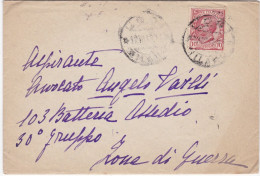 Aspirante
Avvocato Angelo
103 Batteria Assedio
30° Gruppo
Zona di Guerra